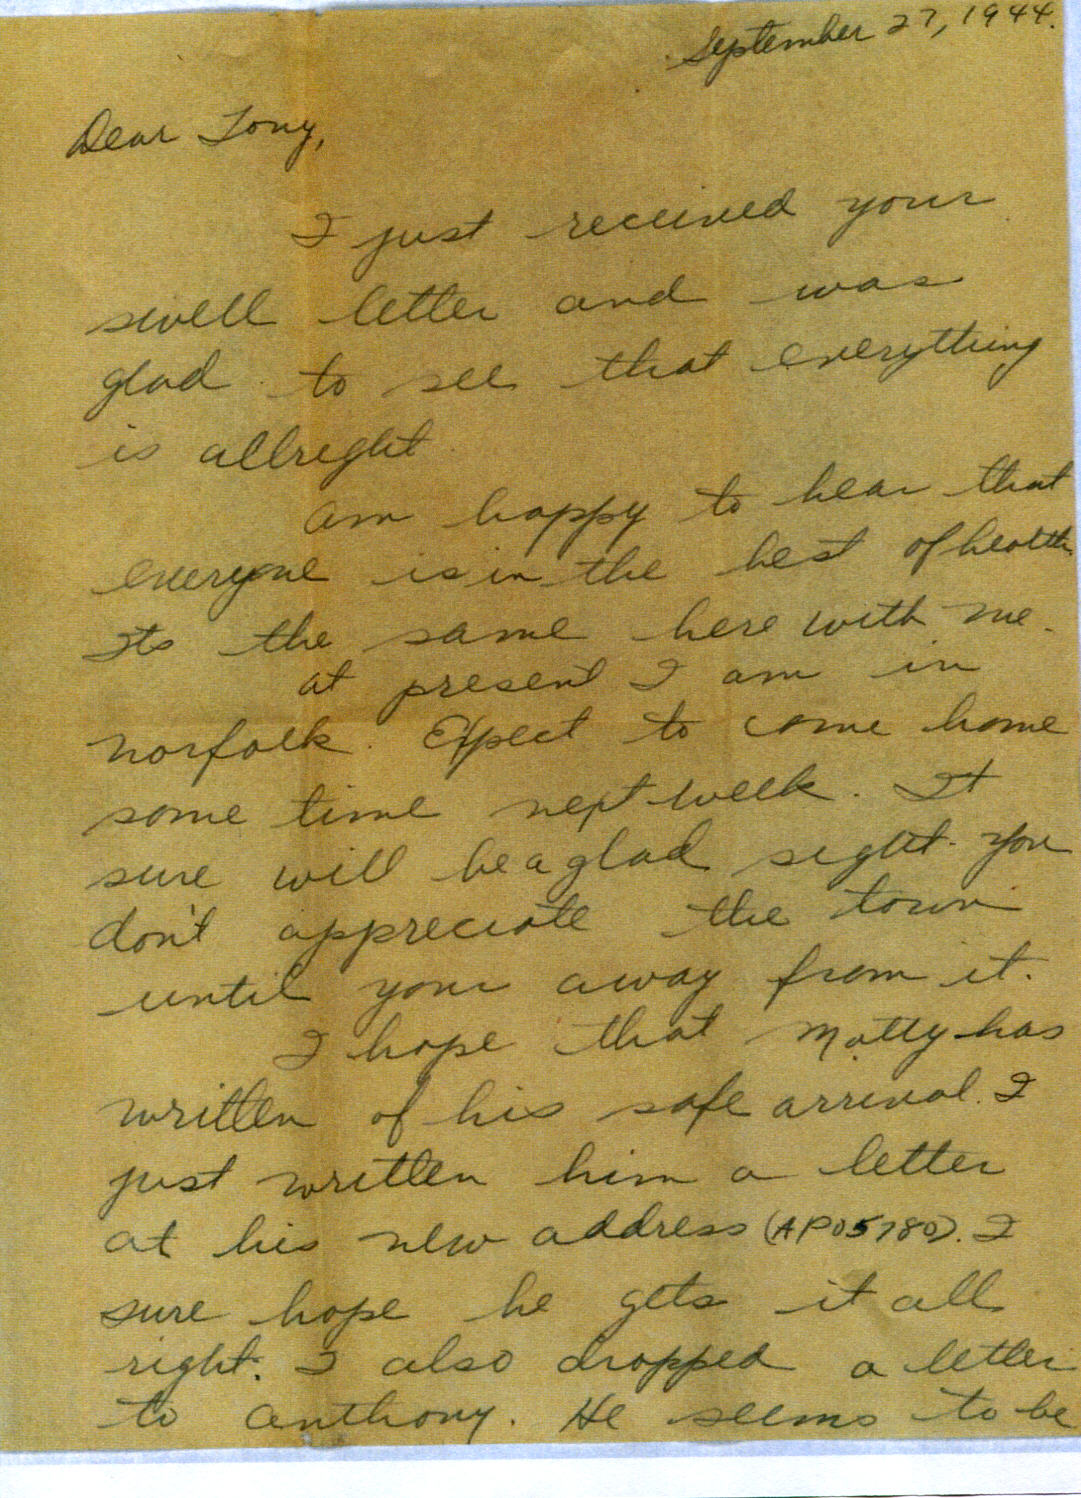 September 27, 1944.
Dear Tony,
I just received your
swell letter and was
glad to see that everything
is allright.
Am happy to hear that
everyone is in the best of health.
Its the same here with me.
At present I am in
Norfolk. Expect to come home
some time next week. It
sure will be a glad sight. You
don't appreciate the town
until your away from it.
I hope that Matty has
written of his safe arrival. I
just written him a letter
at his new address (APO 5780). I
sure hope he gets it all
right. I also dropped a letter
to Anthony. He seems to be